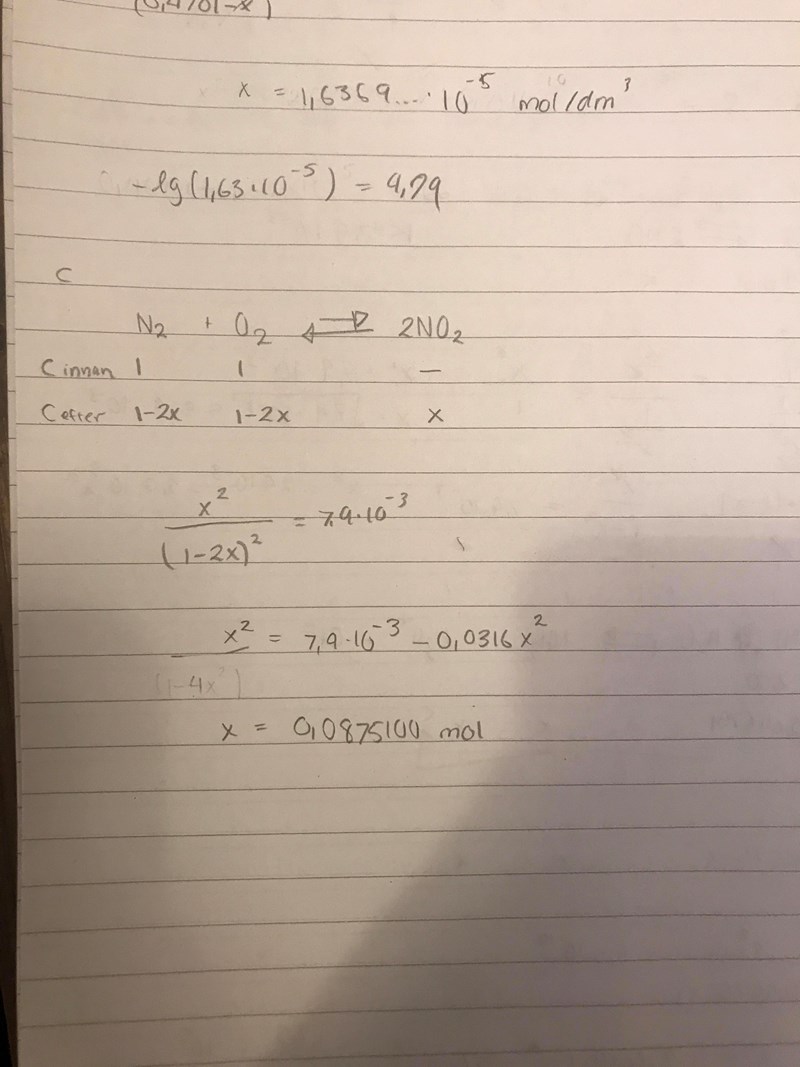 x = 1,6369... · 10⁻⁵ mol/dm³
-lg(1,63·10⁻⁵) = 4,79
C
N₂ + O₂ ⇌ 2NO₂
C innan 1 1 —
C efter 1-2x 1-2x x
x² / (1-2x)² = 7,9·10⁻³
x² = 7,9·10⁻³ - 0,0316x²
(1-4x²)
x = 0,0875100 mol